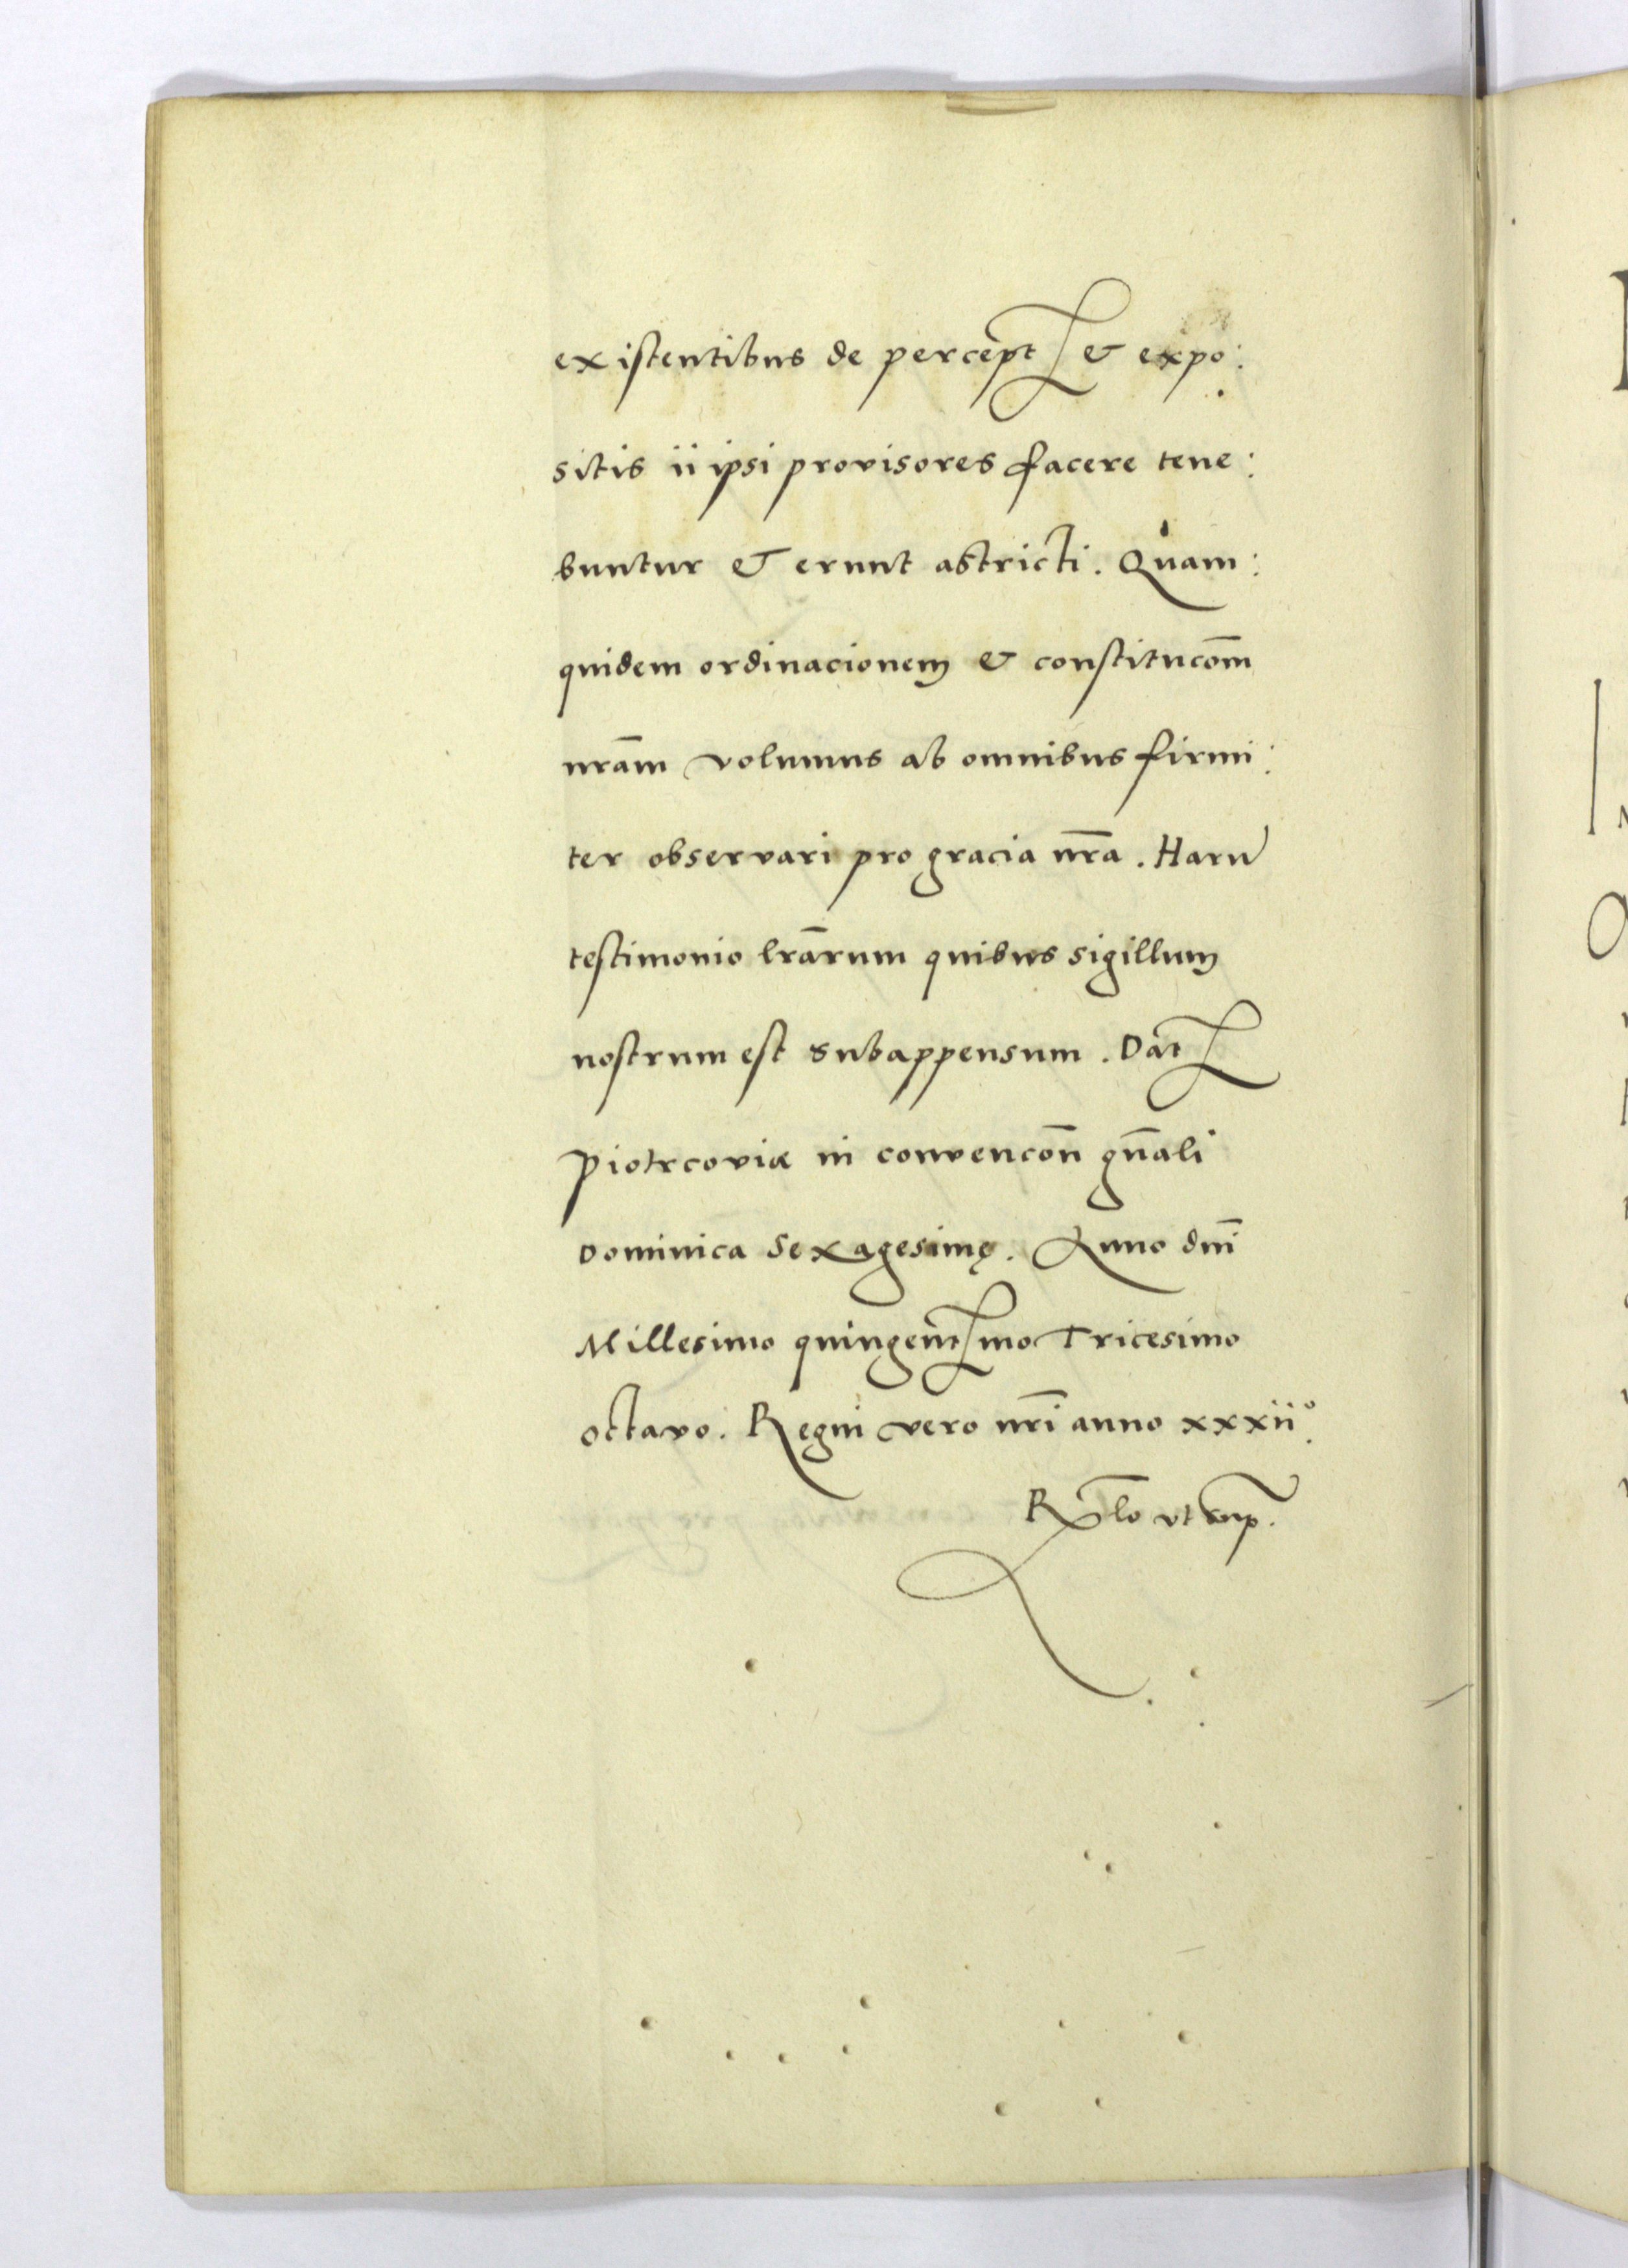 existentibus de percept & expo:
sitis ii ipsi provisores facere tene:
buntur & erunt astricti. Quam:
quidem ordinacionem & constitucōm
nrām volumus ab omnibus firmi:
ter observari pro gracia nrā. Harū
testimonio lrārum quibus sigillum
nostrum est subappensum. Dat
Piotrcoviæ in convencōn gnāli
Dominica Sexagesimę. Anno dnī
Millesimo quingentmo Tricesimo
octavo. Regni vero nrī anno xxxii°.
Rlo ut sup.